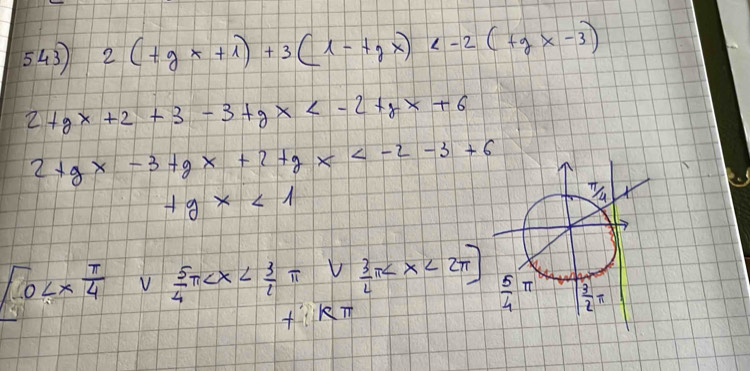 543) 2 (tg x + 1) + 3 (1 - tg x) < -2 (tg x - 3)
2 tg x + 2 + 3 - 3 tg x < -2 tg x + 6
2 tg x - 3 tg x + 2 tg x < -2 - 3 + 6
tg x < 1
π/4
[0 < x π/4 ∨ 5/4 π < x < 3/2 π ∨ 3/2 π < x < 2π]
+ kπ
5/4 π
3/2 π